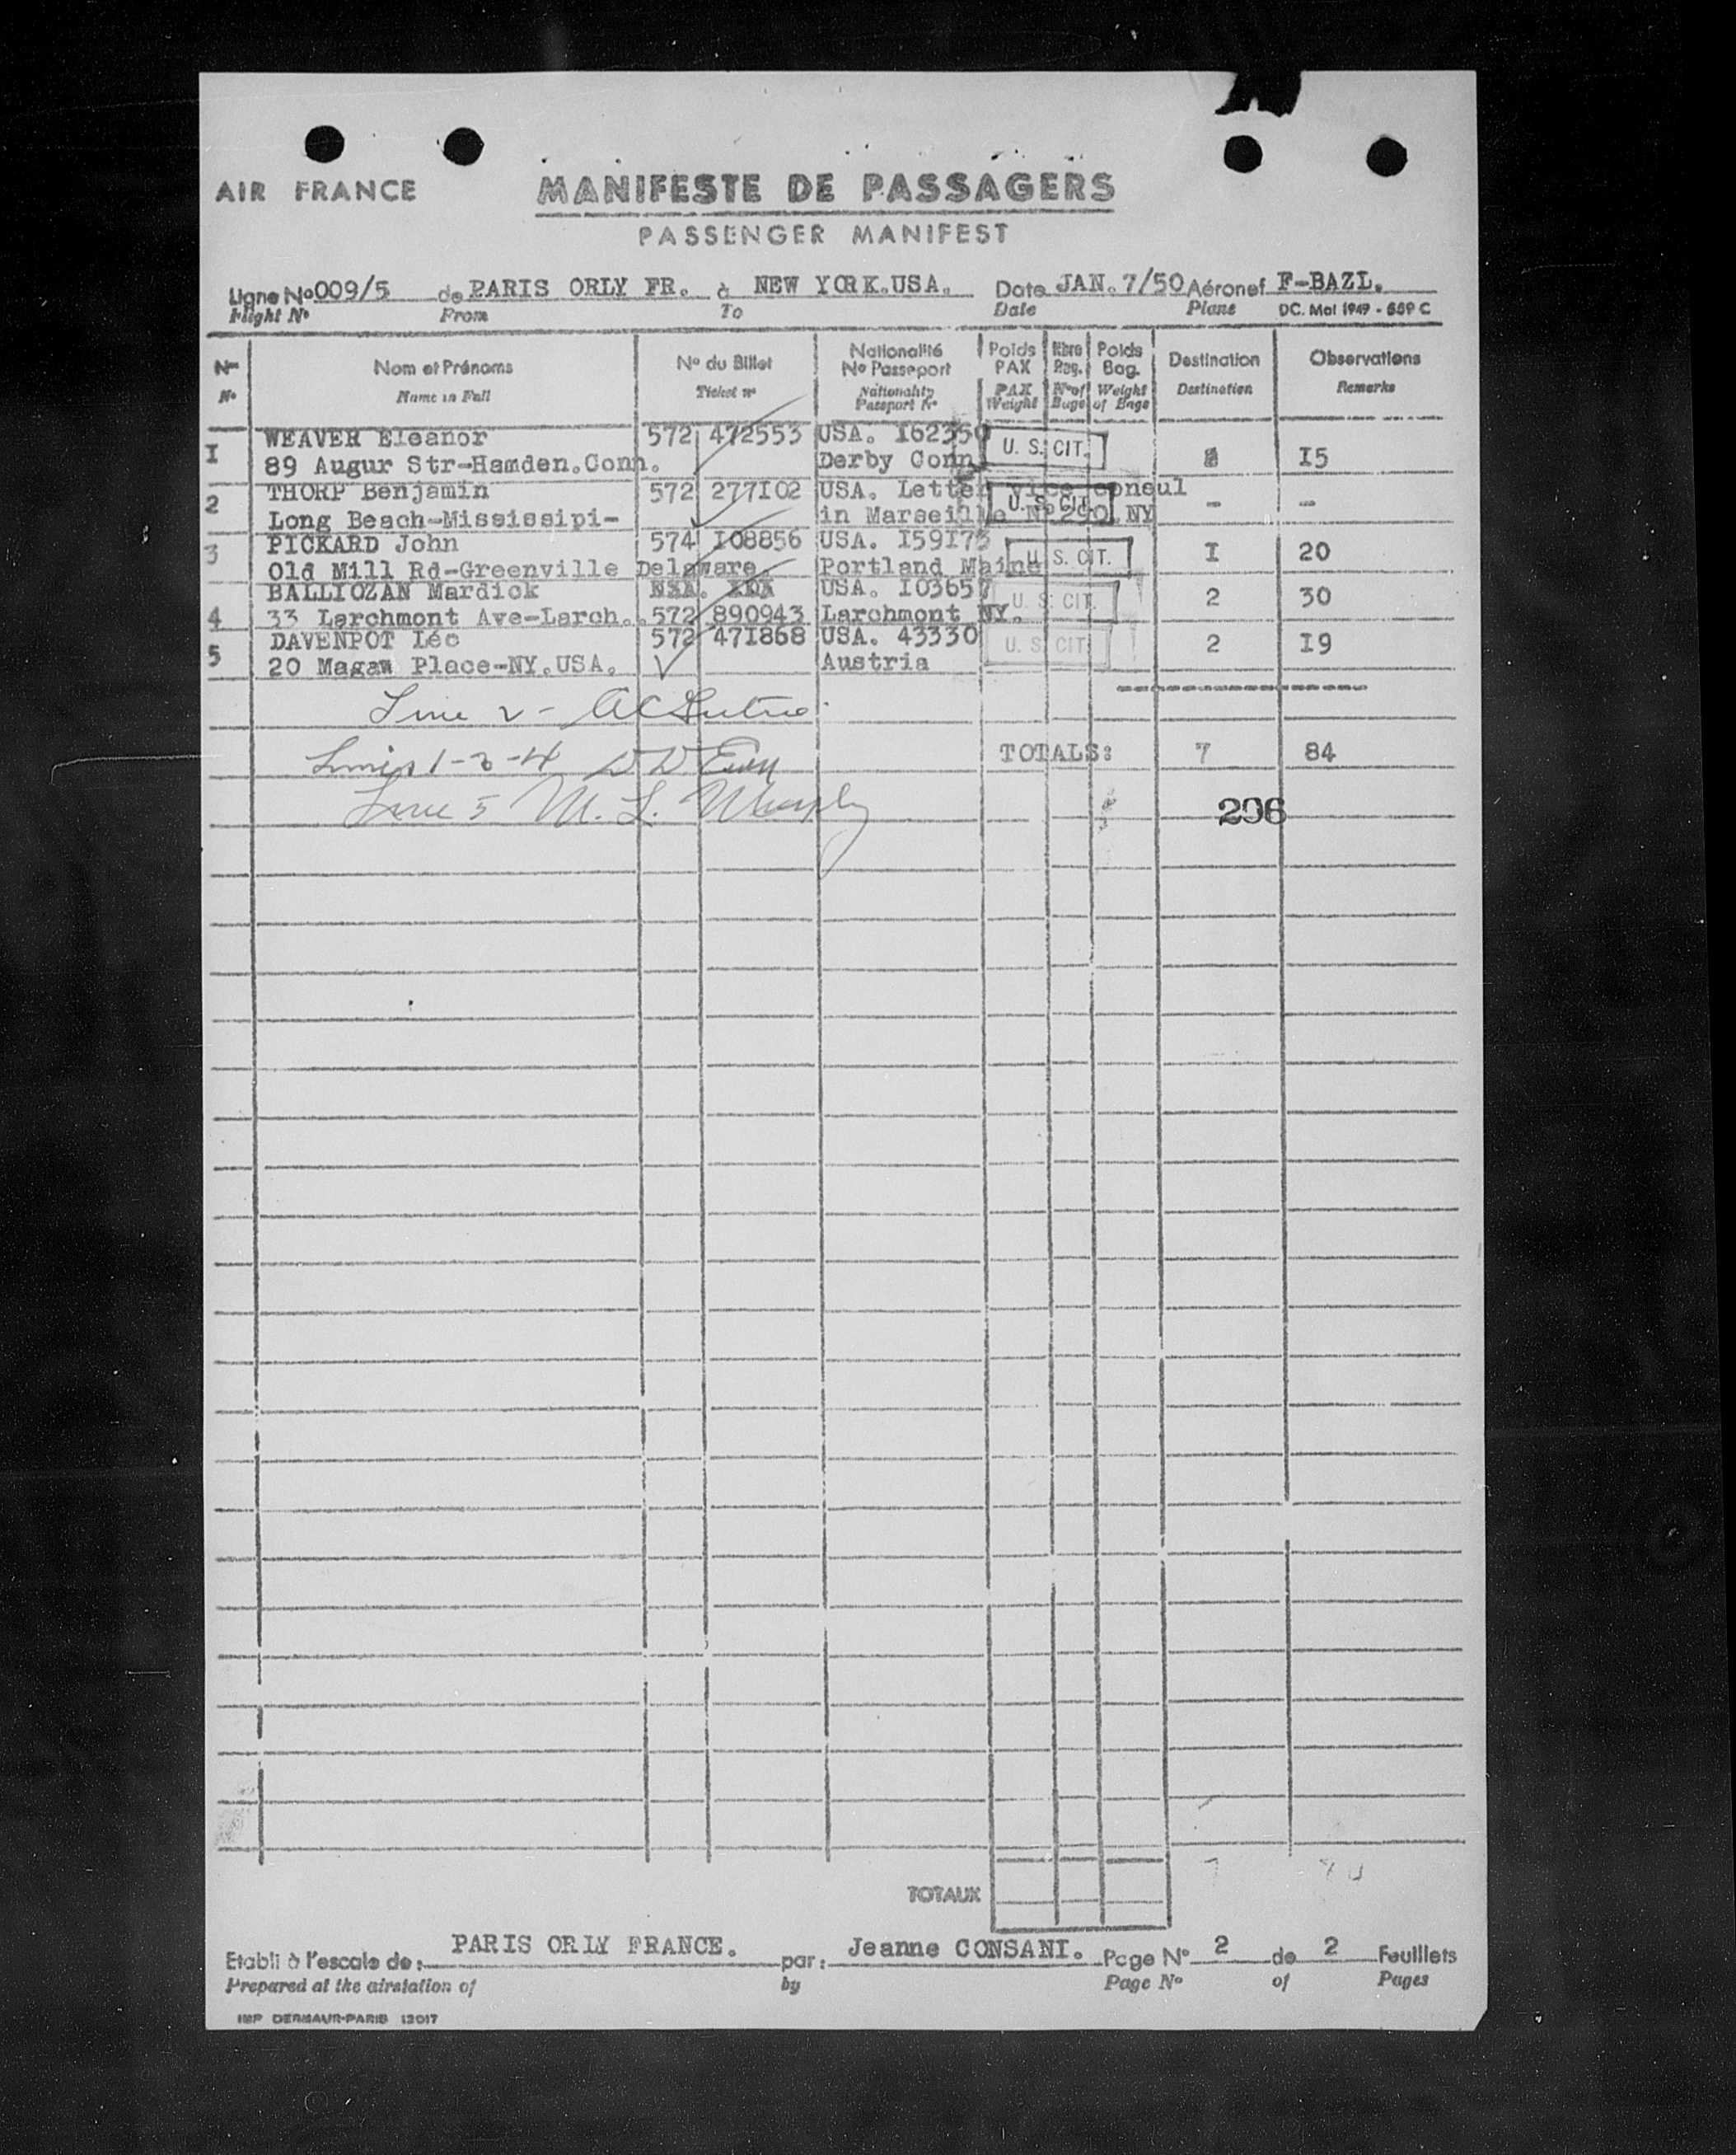 AIR FRANCE
MANIFESTE DE PASSAGERS
PASSENGER MANIFEST
Ligne No 009/5 de PARIS ORLY FR. à NEW YORK.USA. Date JAN. 7/50 Aéronef F-BAZL.
Flight No From To Date Plane DC. Mai 1949 - 559 C
Nos Nom et Prénoms No du Billet Nationalité No Passeport Poids PAX Nbre Bag. Poids Bag. Destination Observations
No Name in Full Ticket no Nationality Passport No PAX Weight No of Bags Weight of Bags Destination Remarks
I WEAVER Eleanor 572 472553 USA. I62350 U. S. CIT. I5
89 Augur Str-Hamden.Conn. Derby Conn
2 THORP Benjamin 572 277I02 USA. Letter vice consul - -
Long Beach-Mississipi- in Marseille No 290 NY U. S. CIT.
3 PICKARD John 574 I08856 USA. I59I73 U. S. CIT. I 20
Old Mill Rd-Greenville Delaware. Portland Maine
4 BALLIOZAN Mardick USA. I03657 U. S. CIT. 2 30
33 Larchmont Ave-Larch.. 572 890943 Larchmont NY.
5 DAVENPOT Léo 572 471868 USA. 43330 U. S. CIT. 2 I9
20 Magaw Place-NY.USA. Austria
Line 2 - AC
Lines 1-3-4
Line 5 M. L. Murphy
TOTALS: 7 84
206
7
TOTAUX
Etabli à l'escale de: PARIS ORLY FRANCE. par: Jeanne CONSANI. Page No 2 de 2 Feuillets
Prepared at the airstation of by Page No of Pages
IMP DERMAUR-PARIS 12017